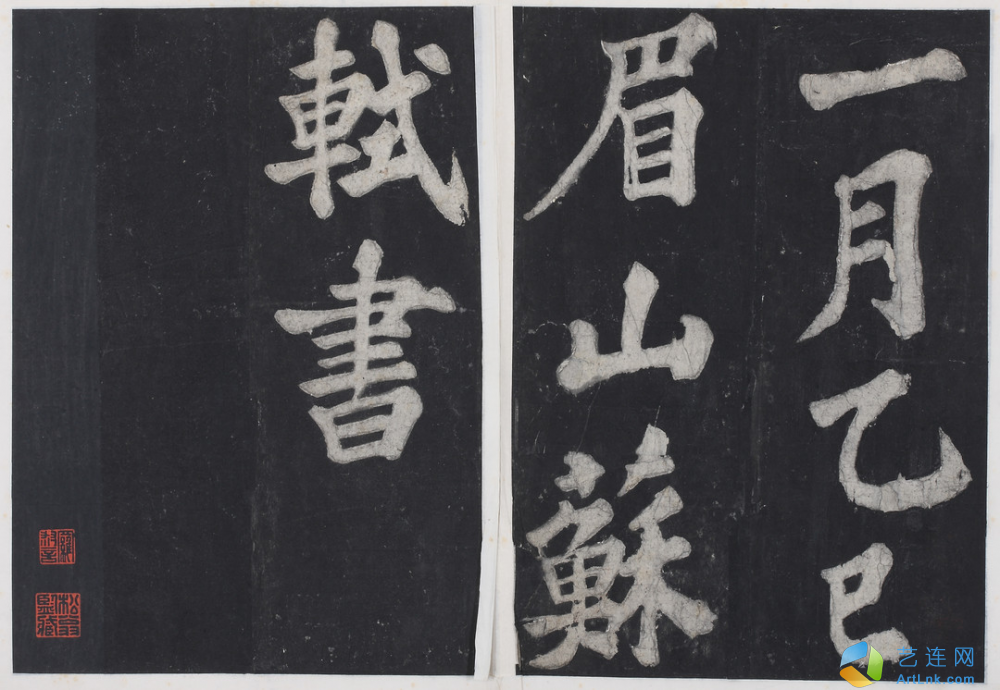 一月乙巳
眉山蘇
軾書
松翁
監藏
艺连网
ArtLnk.com